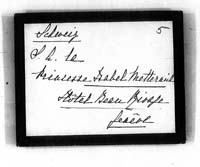 Schweiz 5
S. A. la
Princesse Isabel Metternich
Hotel Beau Rivage
Genève